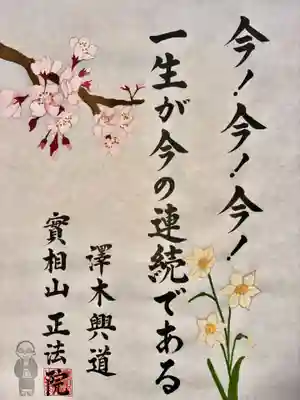 今！今！今！
一生が今の連続である
澤木興道
實相山正法院